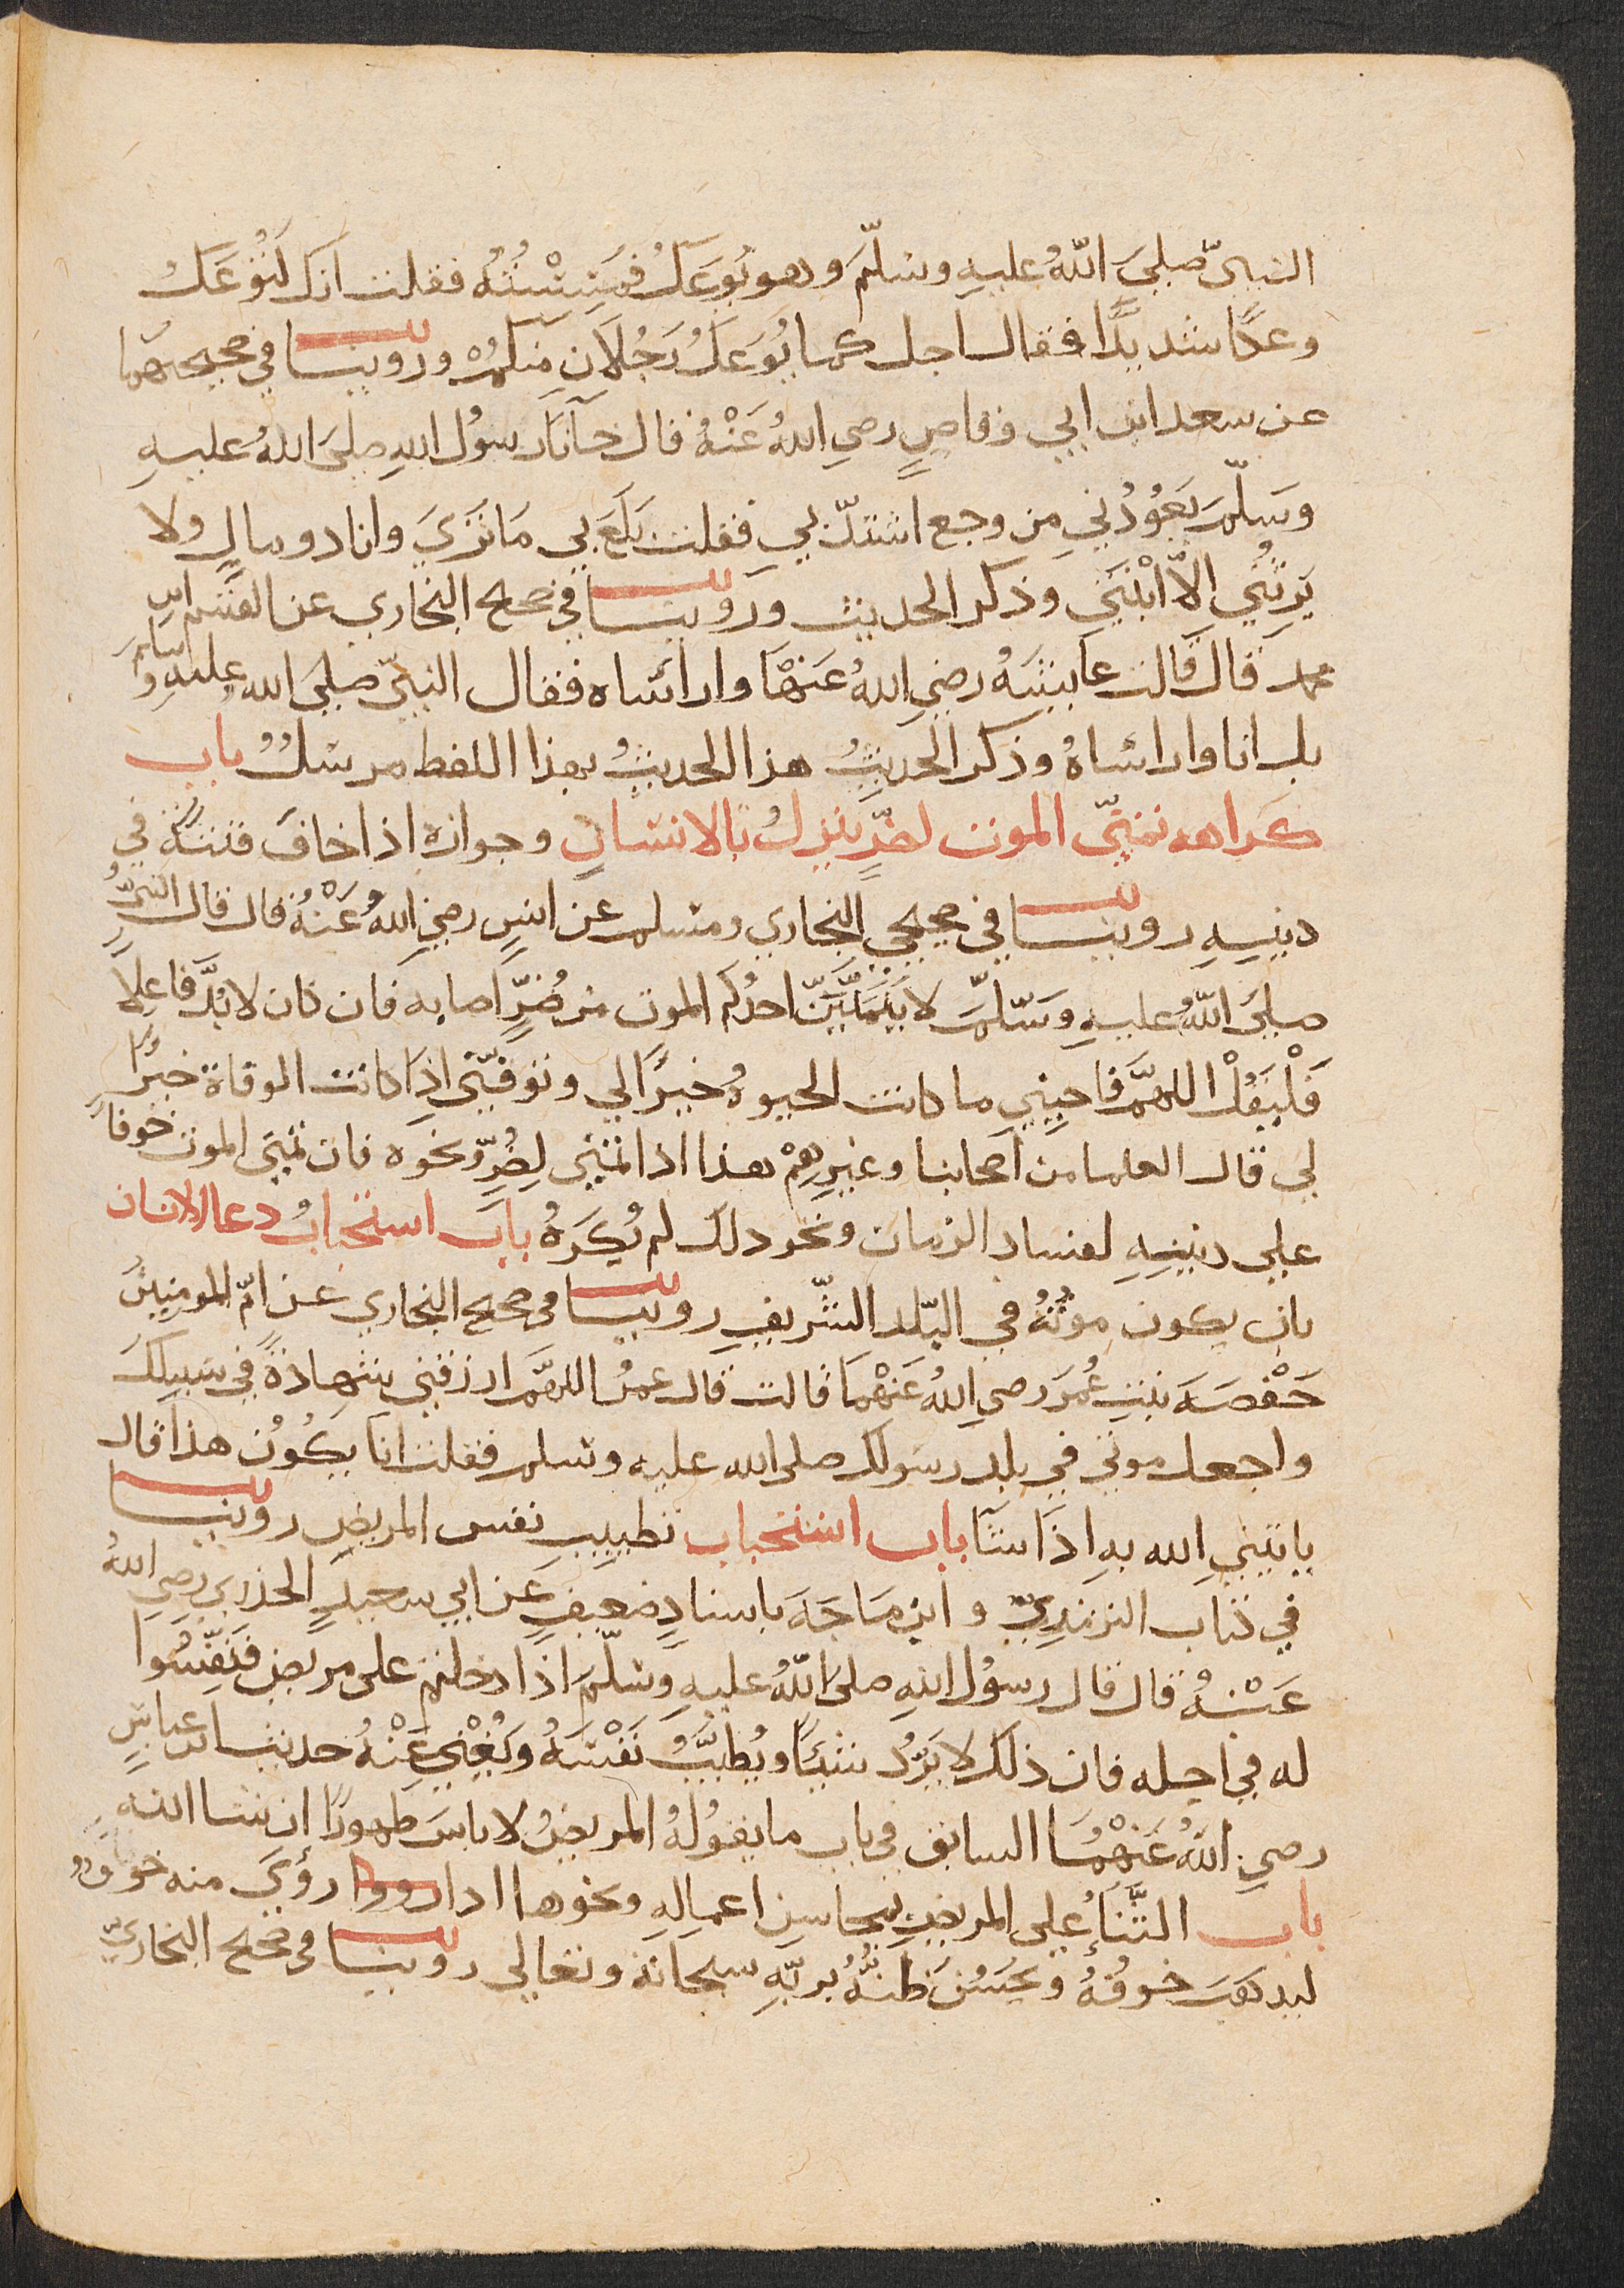 النبيّ صلى اللهُ عليهِ وسلّمَ وهو يُوعَكُ فمَسِسْتُهُ فقلت انك لتُوْعَكُ
وعكًا شديدًا فقال اجل كما يُوعَكُ رَجُلَانِ مِنكمْ وروينا في صحيحهما
عن سعد ابن ابي وقاصٍ رضي اللهُ عَنْهُ قال جآنا رسُول اللهِ صلى اللهُ عليهِ
وسَلّمَ يَعُوْدُنِي مِن وجع اشتدّ بي فقلت بَلَغَ بي مَا تَرَي وانا ذو مالٍ ولا
يَرِثُنِي الّا ابْنَتي وذكر الحديث ورَوينا في صحيح البخاري عن القسم ابن
محمد قال قالت عايشَهُ رضي اللهُ عَنْهَا وارأساه فقال النبيّ صلى الله عليه وسلم
بل انا وارأساهُ وذكر الحديثُ هذا الحديثُ بهذا اللفظ مرسلٌ باب
كراهه تمنّي الموت لضرٍّ ينزلُ بالانسانِ وجوازه اذا خاف فتنةً في
دينِهِ روينا في صحيحي البخاري ومسلم عن انسٍ رضي اللهُ عَنْهُ قال قال النبيُّ
صلى اللهُ عليهِ وسَلّمَ لا يَتَمَنَّيَنَّ احدُكم الموت من ضُرٍّ اصابه فان كان لا بُدَّ فاعلًا
فَلْيَقُلْ اللهمَّ احيِنِي ما كانت الحيوةُ خيرًا لي وتوفّني اذا كانت الوفاة خيرًا
لي قال العلما من اصحابنا وغيرِهِمْ هذا اذا تمنّي لِضُرٍّ ونحوه فان تمنّى الموت خوفًا
على دينِهِ لفساد الزمان ونحو ذلك لم يُكرَهُ باب استحبابُ دعا الانسان
بان يكون موتُهُ في البَلَد الشّريفِ روينا في صحيح البخاري عن امّ المومنينَ
حَفْصَهَ بنتِ عُمَرَ رضي اللهُ عَنْهُمَا قالت قال عمرُ اللهمَّ ارزقني شهادةً في سبيلك
واجعل موتي في بلد رسولك صلى الله عليه وسلم فقلت انا يكُوْن هذا قال
ياتيني الله بهِ اذا شآ باب استحباب تطييبِ نفس المريض روينا
في كتاب الترمذيّ وابن مَاجَهَ باسنادٍ ضعيفٍ عن ابي سعيدٍ الخدري رضي اللهُ
عَنْهُ قال قال رسُول اللهِ صلى اللهُ عليهِ وسَلّمَ اذا دخلتم على مريض فنَفِّسُوا
له في اجله فان ذلك لا يَرُدُّ شيئًا ويُطيِّبُ نَفْسَهُ ويُغْنِي عَنْهُ حديث ابن عباسٍ
رضي اللهُ عَنْهُمَا السابق في باب ما يقُولُهُ المريضُ لا باسَ طهورًا ان شا الله
باب الثَّنَاُ على المريضِ بمحاسنِ اعمالِهِ ونحوها اذا رووا رؤي منه خوف
ليذهب خوفُهُ ويحسُن ظنُّهُ بربّهِ سبحانه وتعالي روينا في صحيح البخاريّ